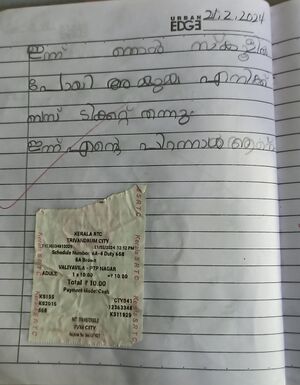 URBAN
EDGE 21.2.2024
ഇന്ന് ഞാൻ സ്കൂളിൽ
പോയി അമ്മുമ്മ എനിക്ക്
ബസ് ടിക്കറ്റ് തന്നു
ഇന്ന് എന്റെ പിറന്നാൾ ആണ്
KERALA RTC
TRIVANDRUM CITY
12:12 PM
Schedule Number 6A-6 Duty 668
VALIYAVILA - PTP NAGAR
ADULT 1 x 10.00 = 10.00
Total ₹ 10.00
Payment Mode: Cash
KS155 CTY941
KS2015 12363348
668 K311929
NOT TRANSFERABLE
TVM CITY